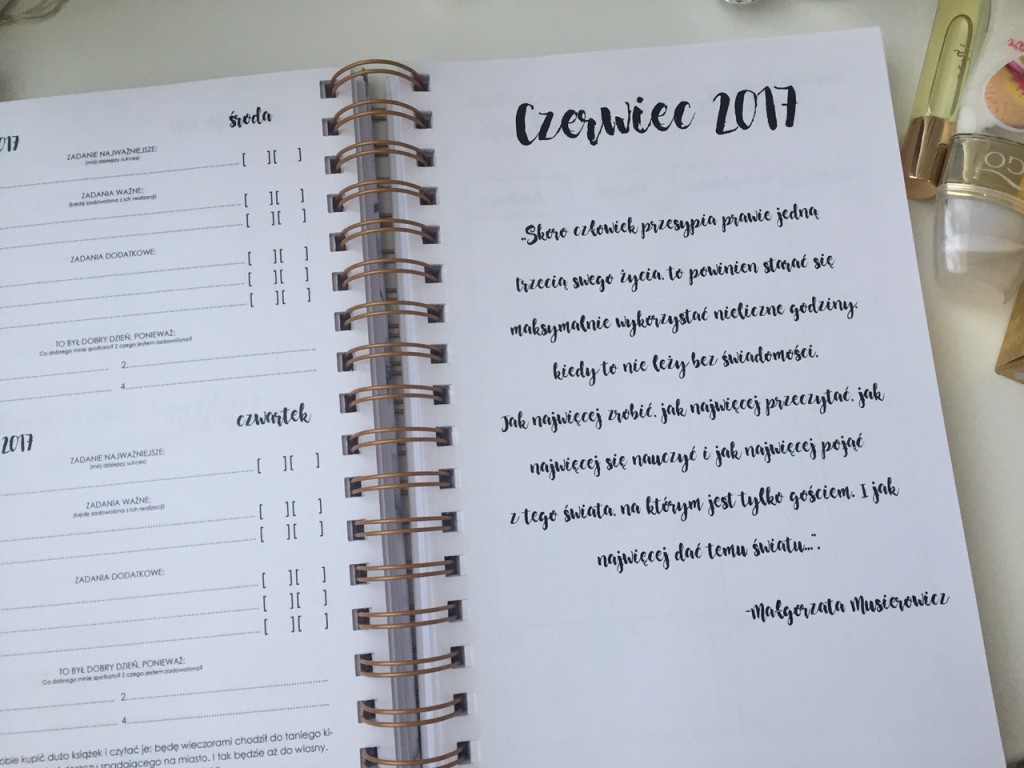 2017
środa
ZADANIE NAJWAŻNIEJSZE:
(mój dzisiejszy sukces)
[ ][ ]
ZADANIA WAŻNE:
(będę zadowolona z ich realizacji)
[ ][ ]
[ ][ ]
ZADANIA DODATKOWE:
[ ][ ]
[ ][ ]
[ ][ ]
TO BYŁ DOBRY DZIEŃ, PONIEWAŻ:
Co dobrego mnie spotkało? Z czego jestem zadowolona?
2.
4.
2017
czwartek
ZADANIE NAJWAŻNIEJSZE:
(mój dzisiejszy sukces)
[ ][ ]
ZADANIA WAŻNE:
(będę zadowolona z ich realizacji)
[ ][ ]
[ ][ ]
ZADANIA DODATKOWE:
[ ][ ]
[ ][ ]
[ ][ ]
TO BYŁ DOBRY DZIEŃ, PONIEWAŻ:
Co dobrego mnie spotkało? Z czego jestem zadowolona?
2.
4.
obie kupić dużo książek i czytać je: będę wieczorami chodził do taniego ki-
spadającego na miasto. I tak będzie aż do wiosny.
Czerwiec 2017
„Skoro człowiek przesypia prawie jedną
trzecią swego życia, to powinien starać się
maksymalnie wykorzystać nieliczne godziny,
kiedy to nie leży bez świadomości.
Jak najwięcej zrobić, jak najwięcej przeczytać, jak
najwięcej się nauczyć i jak najwięcej pojąć
z tego świata, na którym jest tylko gościem. I jak
najwięcej dać temu światu...".
-Małgorzata Musierowicz